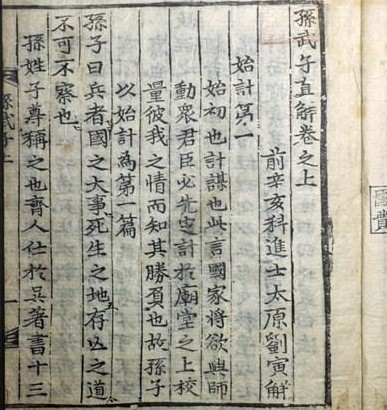 孫武子直解卷之上
前辛亥科進士太原劉寅解
始計第一
始初也計謀也此言國家將欲興師
動衆君臣必先定計於廟堂之上校
量彼我之情而知其勝負也故孫子
以始計爲第一篇
孫子曰兵者國之大事死生之地存亡之道
不可不察也
孫姓子尊稱之也齊人仕於吳著書十三
孫武子上
一